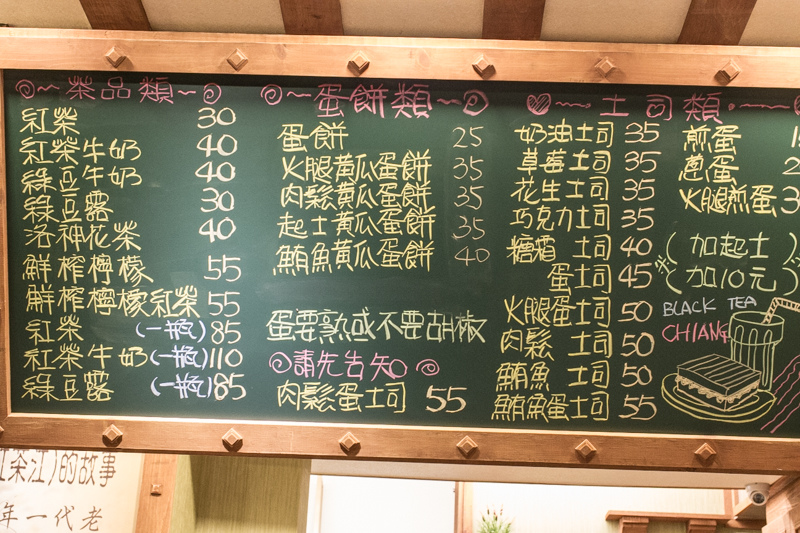 茶品類
紅茶 30
紅茶牛奶 40
綠豆牛奶 40
綠豆露 30
洛神花茶 40
鮮榨檸檬 55
鮮榨檸檬紅茶 55
紅茶 (一瓶) 85
紅茶牛奶 (一瓶) 110
綠豆露 (一瓶) 85
蛋餅類
蛋餅 25
火腿黃瓜蛋餅 35
肉鬆黃瓜蛋餅 35
起士黃瓜蛋餅 35
鮪魚黃瓜蛋餅 40
蛋要熟或不要胡椒
請先告知
肉鬆蛋土司 55
土司類
奶油土司 35
草莓土司 35
花生土司 35
巧克力土司 35
糖霜 土司 40
蛋土司 45
火腿蛋土司 50
肉鬆 土司 50
鮪魚 土司 50
鮪魚蛋土司 55
煎蛋
蔥蛋
火腿煎蛋
(加起士)
(加10元)
BLACK TEA
CHIANG
紅茶江)的故事
年一代老